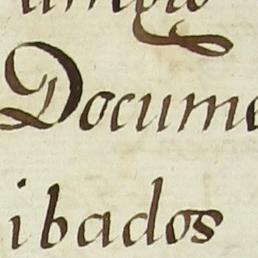 Docume
ibados